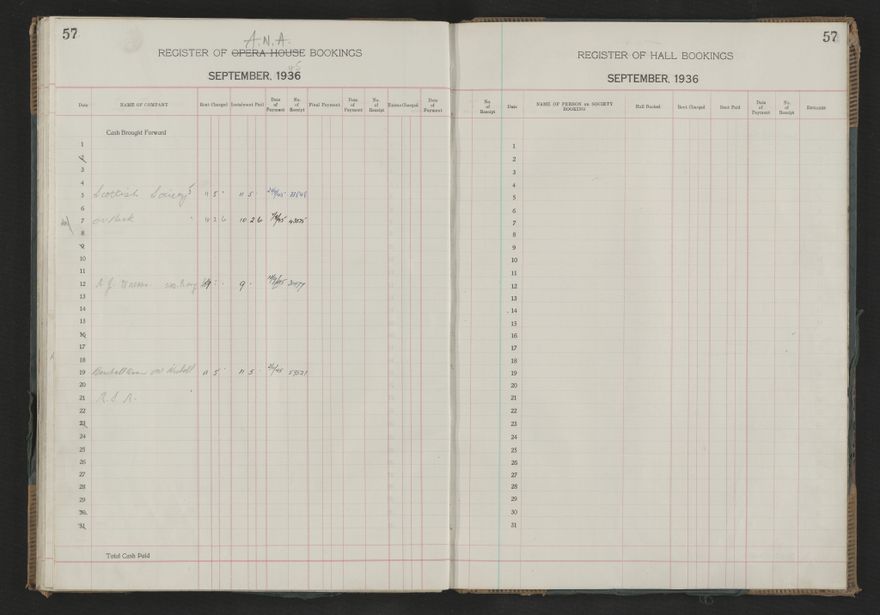 57
A.N.A.
REGISTER OF OPERA HOUSE BOOKINGS
45
SEPTEMBER, 1936
Date NAME OF COMPANY Rent Charged Instalment Paid Date of Payment No. of Receipt Final Payment Date of Payment No. of Receipt Extras Charged Date of Payment
Cash Brought Forward
1
2
3
4
5 Scottish Society 11 5 - 11 5 -
6
7 10 2 6 10 2 6
8
9
10
11
12 A. J. 9 -
13
14
15
16
17
18
19 11 5 - 11 5 -
20
21 R.S.A.
22
23
24
25
26
27
28
29
30
31
Total Cash Paid
57
REGISTER OF HALL BOOKINGS
SEPTEMBER, 1936
No. of Receipt Date NAME OF PERSON or SOCIETY BOOKING Hall Booked Rent Charged Rent Paid Date of Payment No. of Receipt REMARKS
1
2
3
4
5
6
7
8
9
10
11
12
13
14
15
16
17
18
19
20
21
22
23
24
25
26
27
28
29
30
31